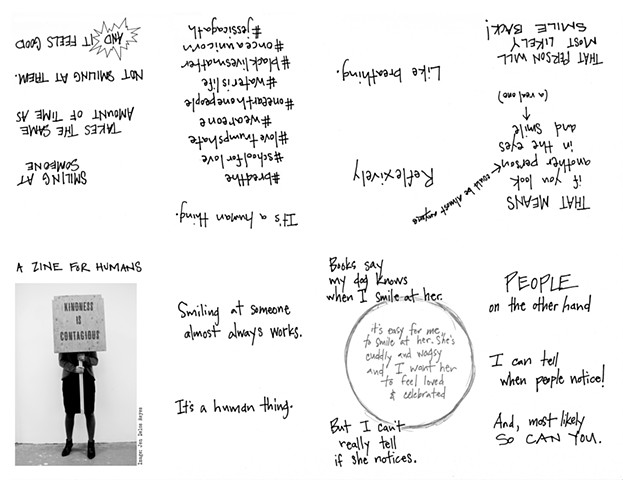 A ZINE FOR HUMANS
KINDNESS
IS
CONTAGIOUS
Image: Jen Delos Reyes
Smiling at someone
almost always works.
It's a human thing.
Books say
my dog knows
when I smile at her.
it's easy for me
to smile at her. She's
cuddly and wagsy
and I want her
to feel loved
& celebrated
But I can't
really tell
if she notices.
PEOPLE
on the other hand
I can tell
when people notice!
And, most likely
SO CAN YOU.
THAT MEANS
if you look
another person
could be almost anyone
in the eyes
and smile
(a real one)
THAT PERSON WILL
MOST LIKELY
SMILE BACK!
Reflexively
Like breathing.
It's a human thing.
#bredthe
#schoolforlove
#lovetrumpshate
#weareone
#oneearthonepeople
#waterislife
#blacklivesmatter
#onceaunicorn
#jessicagath
SMILING AT
SOMEONE
TAKES THE SAME
AMOUNT OF TIME AS
NOT SMILING AT THEM.
AND IT FEELS GOOD